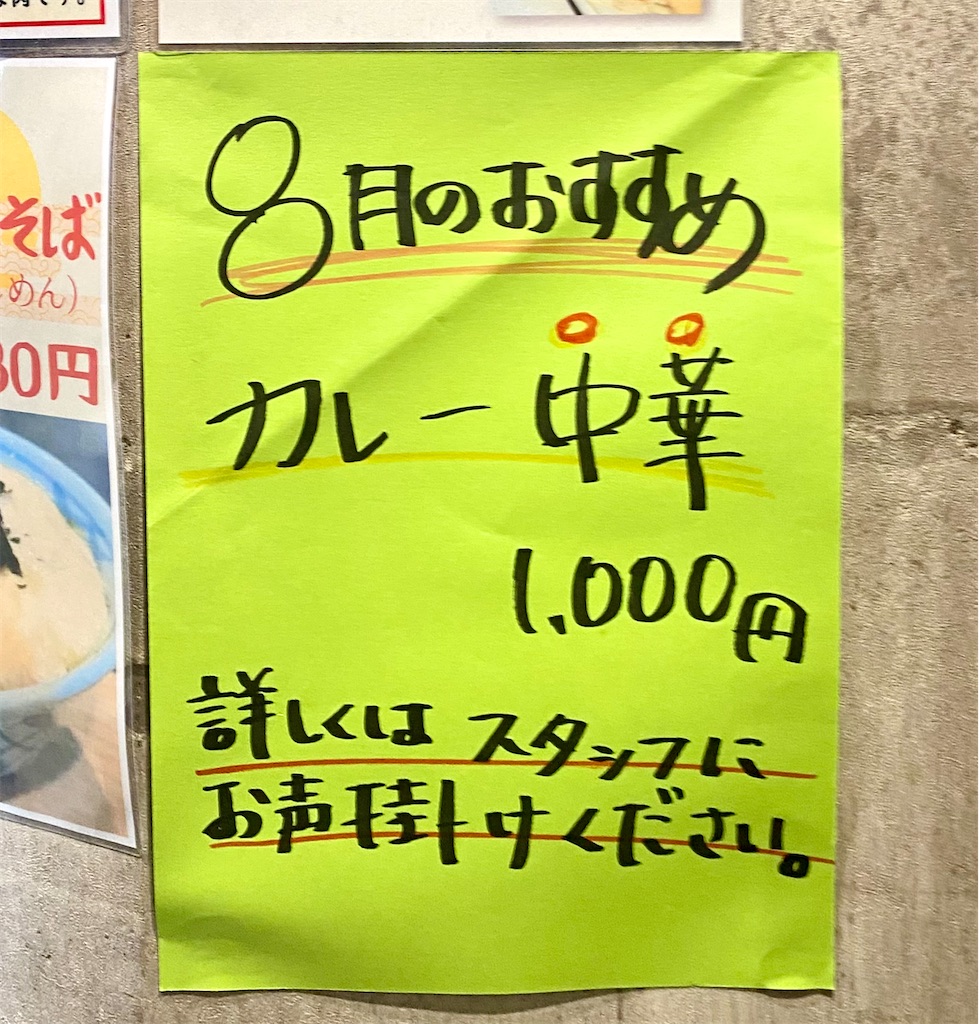 8月のおすすめ
カレー中華
1,000円
詳しくはスタッフに
お声掛けください。
そば
めん)
30円